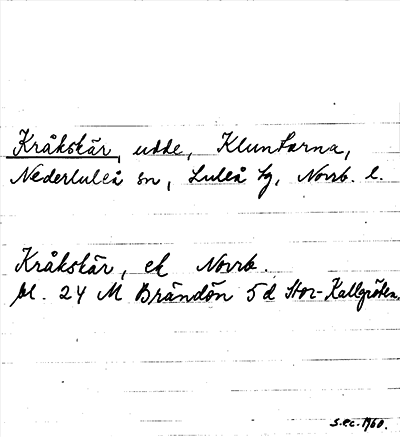 Kråkskär, udde, Kluntarna,
Nederluleå sn, Luleå tg, Norrb. l.
Kråkskär, ek Norrb.
bl. 24 M Brändön 5d Stor-Kallgrötan.
S.ec. 1960.